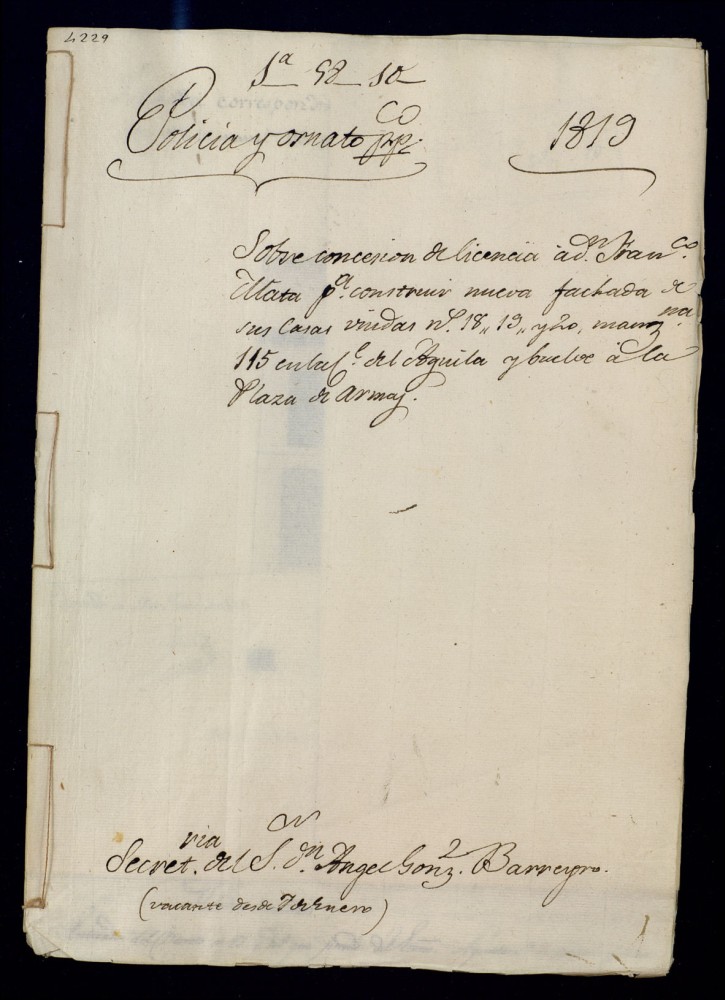 4229
1ª 58 10
Policia y ornato pp.co 1819
Sobre concesion de licencia á dn. Franco.
Mata pª. construir nueva fachada de
sus Casas unidas nº. 18,, 19,, y 20, manzna.
115 en la Ce. del Aguila y buelve á la
Plaza de Armas.
Secretria. del Sr. dn. Angel Gonz. Barreyro.
(vacante desde 7 de Enero)